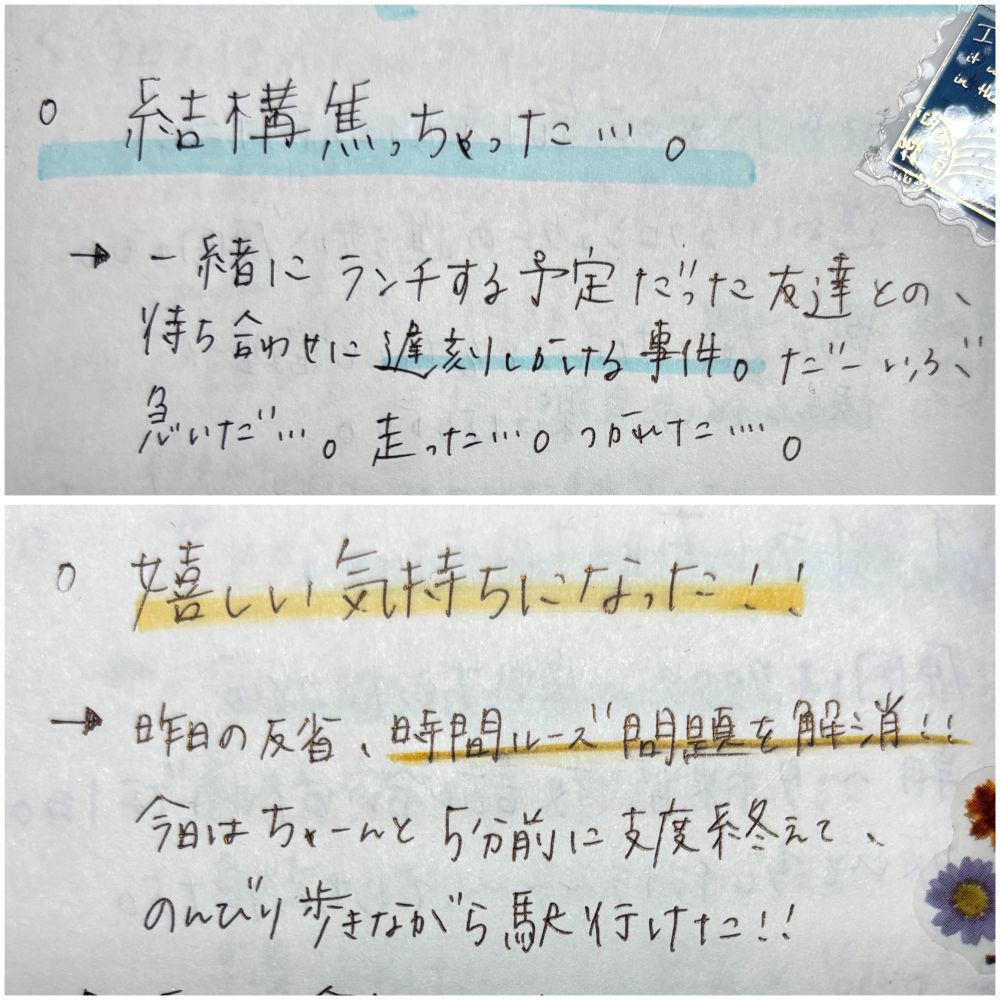 ○ 結構焦っちゃった…。
→ 一緒にランチする予定だった友達との、
待ち合わせに遅刻しかける事件。だーいぶ
急いだ…。走った…。つかれた….。
○ 嬉しい気持ちになった!!
→ 昨日の反省、時間ルーズ問題を解消!!
今日はちゃーんと5分前に支度終えて、
のんびり歩きながら駅行けた!!